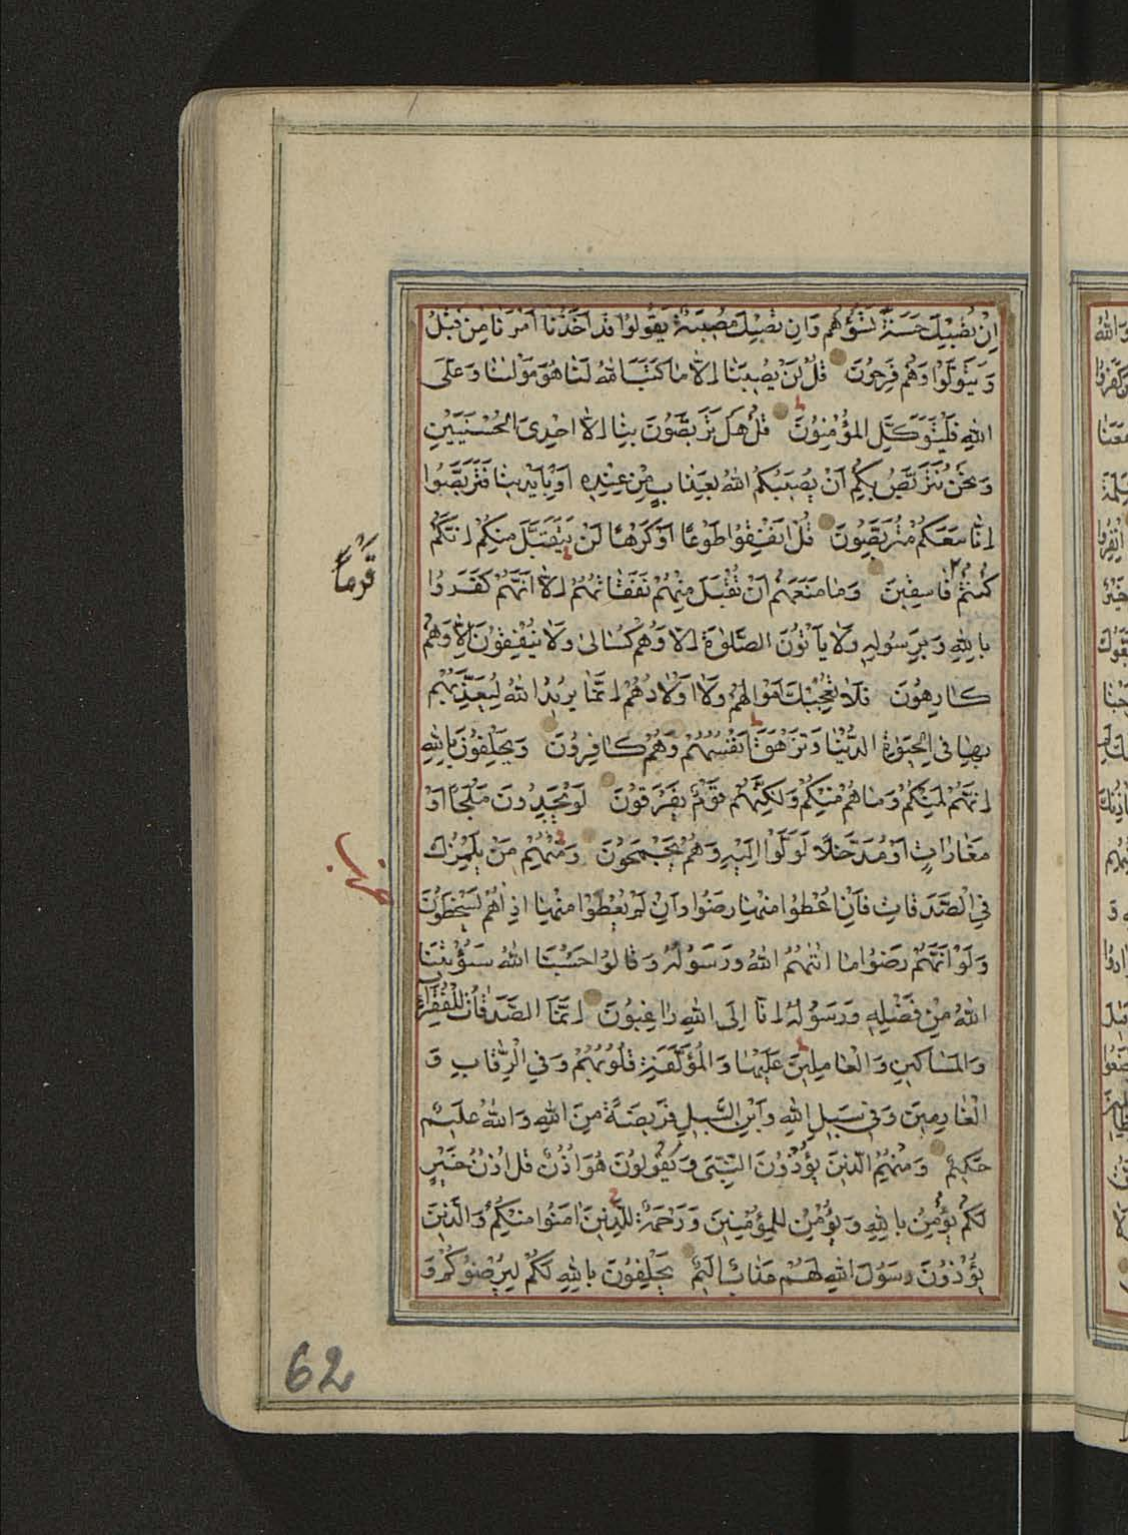 اِنْ تُصِبْكَ حَسَنَةٌ تَسُؤْهُمْ وَاِنْ تُصِبْكَ مُصِيبَةٌ يَقُولُوا قَدْ اَخَذْنَا اَمْرَنَا مِنْ قَبْلُ
وَيَتَوَلَّوْا وَهُمْ فَرِحُونَ قُلْ لَنْ يُصِيبَنَا اِلَّا مَا كَتَبَ اللهُ لَنَا هُوَ مَوْلٰنَا وَعَلَى
اللهِ فَلْيَتَوَكَّلِ الْمُؤْمِنُونَ قُلْ هَلْ تَرَبَّصُونَ بِنَا اِلَّا اِحْدَى الْحُسْنَيَيْنِ
وَنَحْنُ نَتَرَبَّصُ بِكُمْ اَنْ يُصِيبَكُمُ اللهُ بِعَذَابٍ مِنْ عِنْدِهِ اَوْ بِاَيْدِينَا فَتَرَبَّصُوا
اِنَّا مَعَكُمْ مُتَرَبِّصُونَ قُلْ اَنْفِقُوا طَوْعًا اَوْ كَرْهًا لَنْ يُتَقَبَّلَ مِنْكُمْ اِنَّكُمْ
كُنْتُمْ قَوْمًا فَاسِقِينَ وَمَا مَنَعَهُمْ اَنْ تُقْبَلَ مِنْهُمْ نَفَقَاتُهُمْ اِلَّا اَنَّهُمْ كَفَرُوا
بِاللهِ وَبِرَسُولِهِ وَلَا يَأْتُونَ الصَّلٰوةَ اِلَّا وَهُمْ كُسَالٰى وَلَا يُنْفِقُونَ اِلَّا وَهُمْ
كَارِهُونَ فَلَا تُعْجِبْكَ اَمْوَالُهُمْ وَلَا اَوْلَادُهُمْ اِنَّمَا يُرِيدُ اللهُ لِيُعَذِّبَهُمْ
بِهَا فِي الْحَيٰوةِ الدُّنْيَا وَتَزْهَقَ اَنْفُسُهُمْ وَهُمْ كَافِرُونَ وَيَحْلِفُونَ بِاللهِ
اِنَّهُمْ لَمِنْكُمْ وَمَا هُمْ مِنْكُمْ وَلٰكِنَّهُمْ قَوْمٌ يَفْرَقُونَ لَوْ يَجِدُونَ مَلْجَأً اَوْ
مَغَارَاتٍ اَوْ مُدَّخَلًا لَوَلَّوْا اِلَيْهِ وَهُمْ يَجْمَحُونَ وَمِنْهُمْ مَنْ يَلْمِزُكَ
فِي الصَّدَقَاتِ فَاِنْ اُعْطُوا مِنْهَا رَضُوا وَاِنْ لَمْ يُعْطَوْا مِنْهَا اِذَا هُمْ يَسْخَطُونَ
وَلَوْ اَنَّهُمْ رَضُوا مَا اٰتٰهُمُ اللهُ وَرَسُولُهُ وَقَالُوا حَسْبُنَا اللهُ سَيُؤْتِينَا
اللهُ مِنْ فَضْلِهِ وَرَسُولُهُ اِنَّا اِلَى اللهِ رَاغِبُونَ اِنَّمَا الصَّدَقَاتُ لِلْفُقَرَاءِ
وَالْمَسَاكِينِ وَالْعَامِلِينَ عَلَيْهَا وَالْمُؤَلَّفَةِ قُلُوبُهُمْ وَفِي الرِّقَابِ وَ
الْغَارِمِينَ وَفِي سَبِيلِ اللهِ وَابْنِ السَّبِيلِ فَرِيضَةً مِنَ اللهِ وَاللهُ عَلِيمٌ
حَكِيمٌ وَمِنْهُمُ الَّذِينَ يُؤْذُونَ النَّبِيَّ وَيَقُولُونَ هُوَ اُذُنٌ قُلْ اُذُنُ خَيْرٍ
لَكُمْ يُؤْمِنُ بِاللهِ وَيُؤْمِنُ لِلْمُؤْمِنِينَ وَرَحْمَةٌ لِلَّذِينَ اٰمَنُوا مِنْكُمْ وَالَّذِينَ
يُؤْذُونَ رَسُولَ اللهِ لَهُمْ عَذَابٌ اَلِيمٌ يَحْلِفُونَ بِاللهِ لَكُمْ لِيُرْضُوكُمْ وَ
62